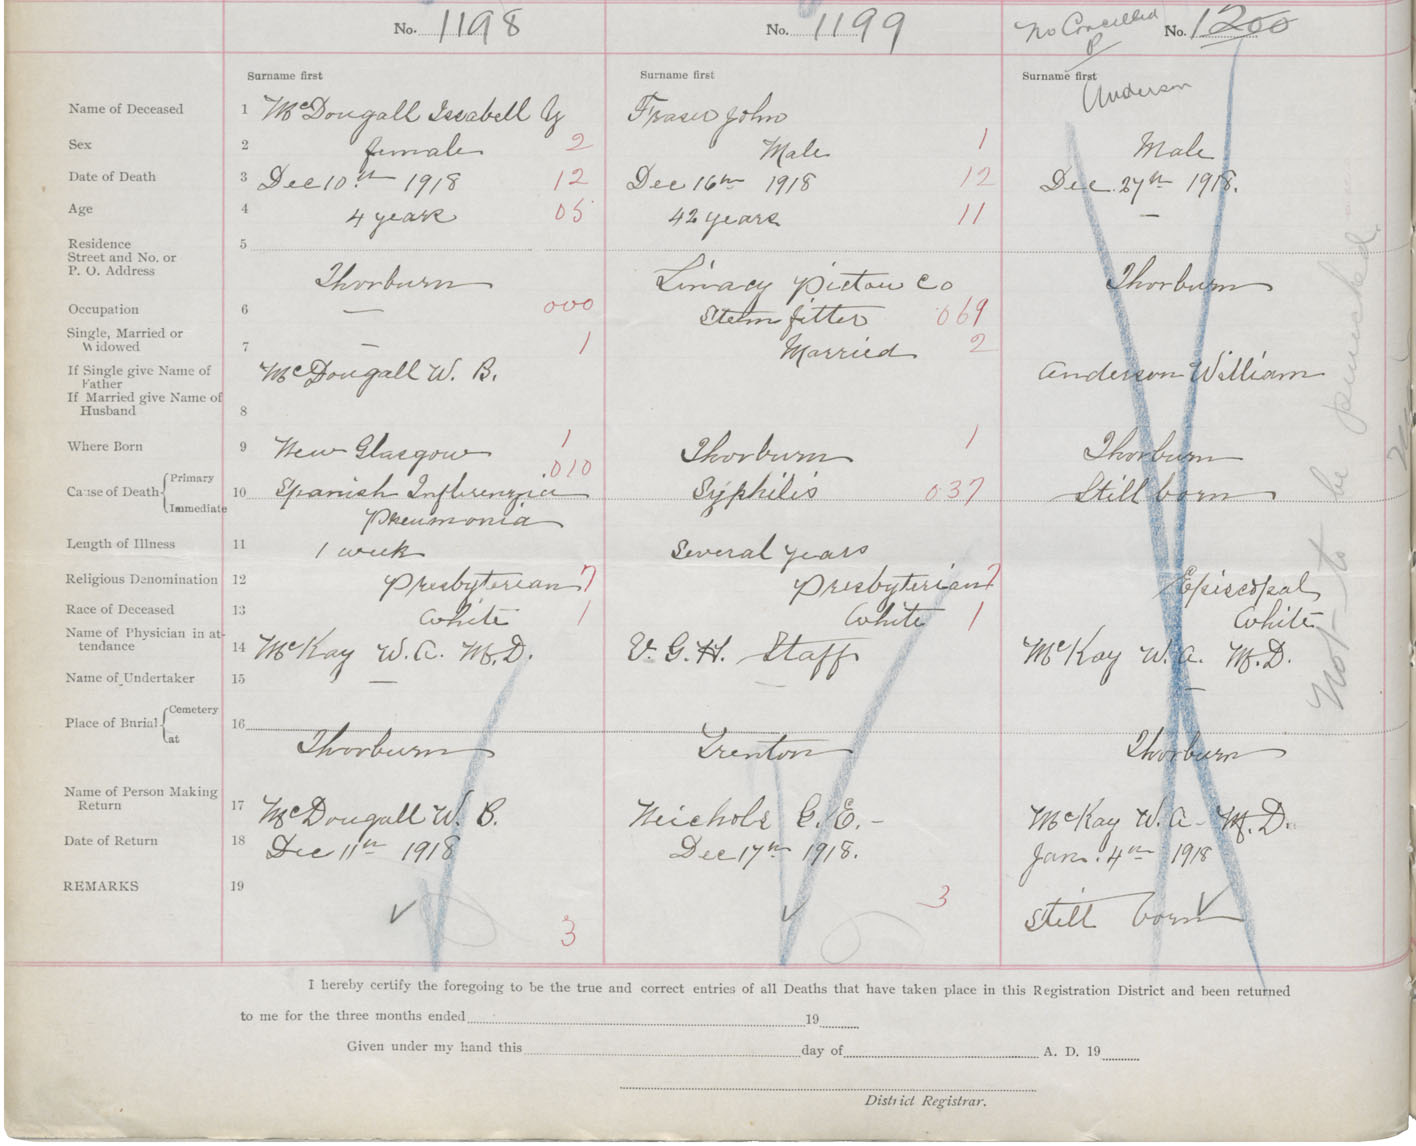 No. 1198 No. 1199 No Cancelled No. 1200
Surname first Surname first Surname first
Anderson
Name of Deceased 1 McDougall Issabell Y Fraser John
Sex 2 female 2 Male 1 Male
Date of Death 3 Dec 10th 1918 12 Dec 16th 1918 12 Dec. 27th 1918.
Age 4 4 years 05 42 years 11 —
Residence 5
Street and No. or
P. O. Address Thorburn Linacy Pictou Co Thorburn
Occupation 6 — 000 Steam fitter 069
Single, Married or
Widowed 7 — 1 Married 2
If Single give Name of
Father McDougall W. B. Anderson William
If Married give Name of
Husband 8
Where Born 9 New Glasgow 1 Thorburn 1 Thorburn
.010
Cause of Death Primary
Immediate 10 Spanish Influenzia Syphilis 037 Still born
Pneumonia
Length of Illness 11 1 week Several years
Religious Denomination 12 Presbyterian 7 Presbyterian 7 Episcopal
Race of Deceased 13 White 1 White 1 White
Name of Physician in at-
tendance 14 McKay W. A. M. D. V. G. H. Staff McKay W. A. M. D.
Name of Undertaker 15 — — —
Place of Burial Cemetery
at 16
Thorburn Trenton Thorburn
Name of Person Making
Return 17 McDougall W. B. Neichols G. E. – McKay W. A – M. D.
Date of Return 18 Dec 11th 1918 Dec 17th 1918. Jan. 4th 1918
REMARKS 19 3 3 Still born
Not to be punched.
I hereby certify the foregoing to be the true and correct entries of all Deaths that have taken place in this Registration District and been returned
to me for the three months ended 19
Given under my hand this day of A. D. 19
District Registrar.